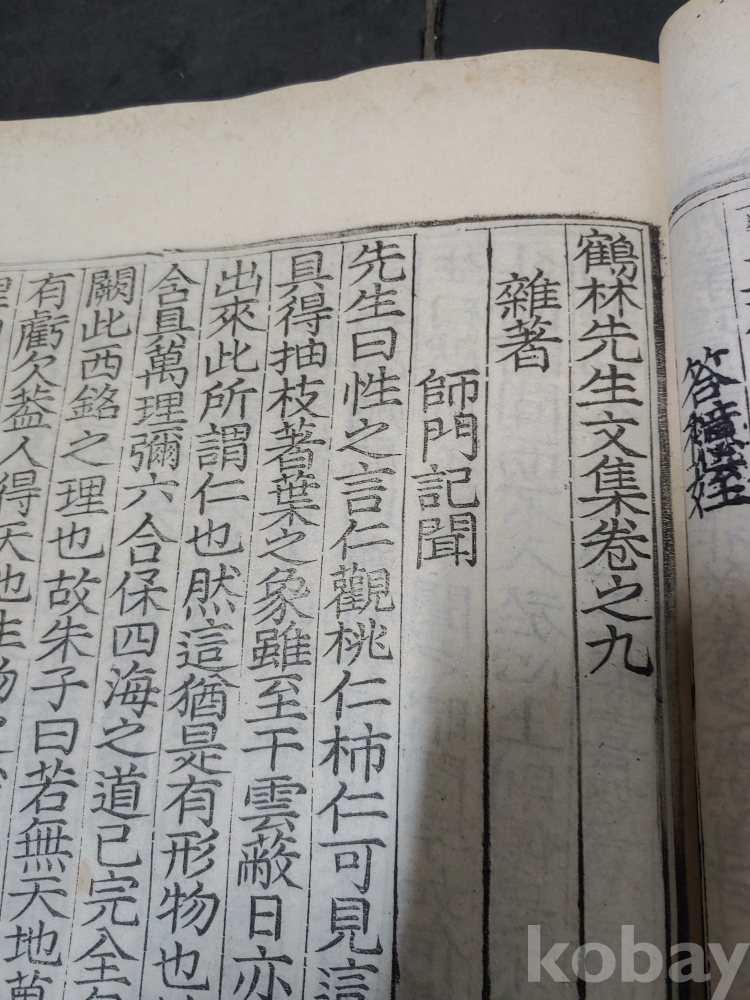 鶴林先生文集卷之九
雜著
師門記聞
先生曰性之言仁觀桃仁柿仁可見這
具得抽枝著葉之象雖至干雲蔽日亦
出來此所謂仁也然這猶是有形物也
含具萬理彌六合保四海之道已完全
闕此西銘之理也故朱子曰若無天地萬
有虧欠蓋人得天地生物
kobay